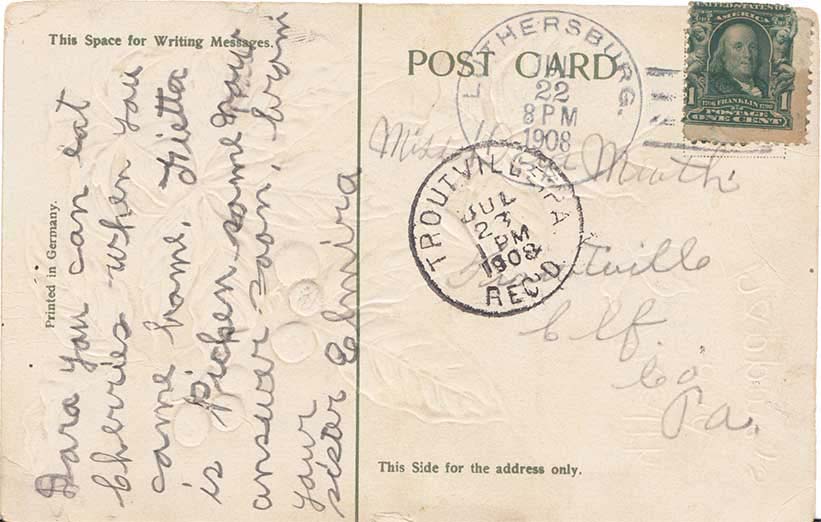 This Space for Writing Messages.
Printed in Germany.
Dara you can eat
Cherries when you
came home. Tietta
is picken some now
answer soon, from
your
sister Elmira
POST CARD
LUTHERSBURG.
22
8 PM
1908
UNITED STATES OF
AMERICA
1 1
1706 FRANKLIN 1790
POSTAGE
ONE CENT
Miss
TROUTVILLE PA
JUL
23
1 PM
1908
REC'D
Troutville
Clf.
Co
Pa.
This Side for the address only.